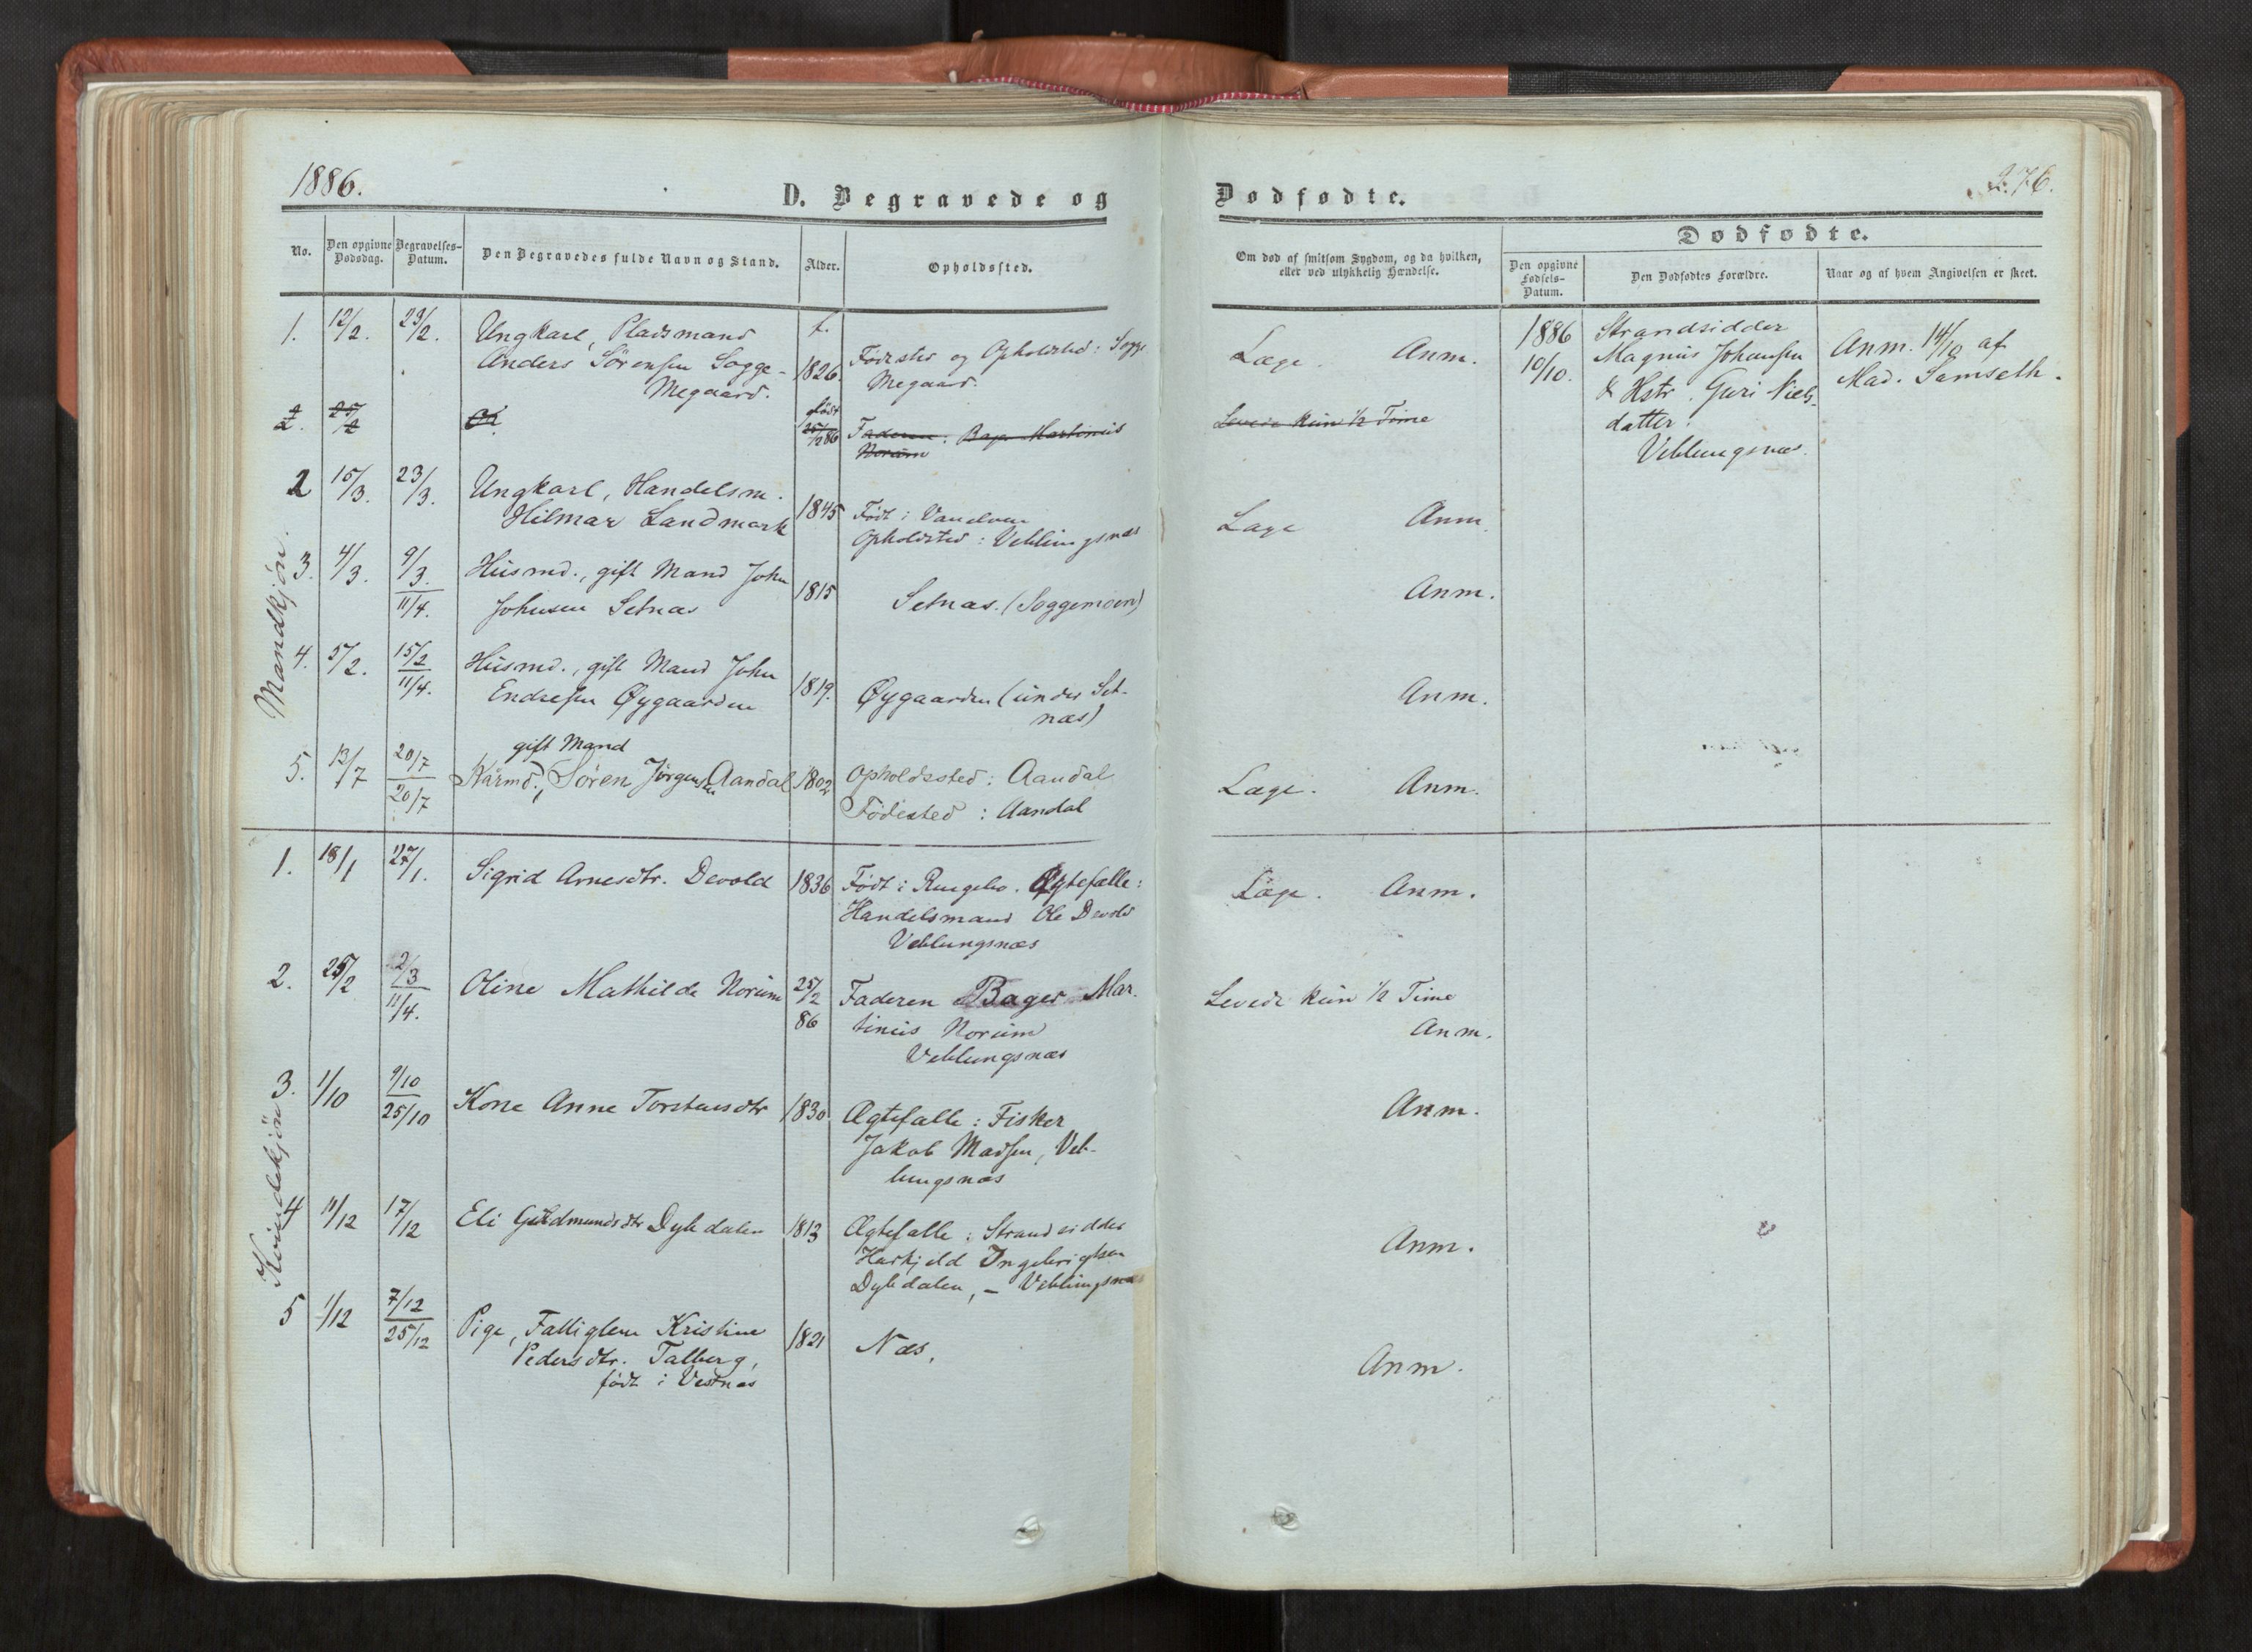 1886.
D. Begravede og
No.
Den opgivne Dødsdag.
Begravelses-Datum.
Den Begravedes fulde Navn og Stand.
Alder.
Opholdssted.
Mandkjøn.
1. 12/2. 23/2. Ungkarl, Pladsmand f. Fødested og Opholdsted: Sogge
Anders Sörensen Sogge- 1826. Megaard.
Megaard.
2. 25/2 Ol født
25/2 86 Faderen: Bager Martinius
Norum
2 15/3. 23/3. Ungkarl, Handelsm. 1845 Født i Vanelven
Hilmar Landmark Opholdsted: Veblungsnæs
3. 4/3. 9/3. Husmd., gift Mand John 1815
11/4. Johnsen Setnæs Setnæs. (Soggemoen)
4. 5/2. 15/2 Husmd., gift Mand John 1819.
11/4. Endresen Øygaarden Øygaarden (under Set-
næs)
gift Mand
5. 13/7 20/7 Kårmd., Sören Jörgensen Aandal 1802 Opholdssted: Aandal
20/7 Fødested: Aandal
Kvindekjön
1. 18/1 27/1. Sigrid Arnesdtr. Devold 1836 Født i Ringebo. Ægtefælle:
Handelsmand Ole Devold
Veblungsnæs
2. 25/2 2/3 Oline Mathilde Norum 25/2 Faderen Bager Mar-
11/4. 86 tinius Norum
Veblungsnæs
3. 1/10 9/10 Kone Anne Torstensdtr 1830 Ægtefælle: Fisker
25/10 Jakob Madsen, Veb-
lungsnæs
4 11/12 17/12 Eli Guldmundsdtr Dybdalen 1813 Ægtefælle: Strandsidder
Haskjeld Ingebrigtsen
Dybdalen, - Veblungsnæs
5 1/12 7/12 Pige, Fattiglem Kristine 1821 Næs.
25/12 Pedersdtr. Talberg,
født i Vestnæs
Dødfødte.
276.
Om død af smitsom Sygdom, og da hvilken,
eller ved ulykkelig Hændelse.
Dødfødte.
Den opgivne Fødsels-Datum.
Den Dødfødtes Forældre.
Naar og af hvem Angivelsen er skeet.
Læge. Anm.
Levede kun 1/2 Time
1886 Strandsidder
10/10. Magnus Johansen Anm. 14/10 af
& Hstr. Guri Niels- Mad. Samseth.
datter.
Veblungsnæs.
Læge Anm.
Anm.
Anm.
Læge. Anm.
Læge. Anm.
Levede kun 1/2 Time
Anm.
Anm.
Anm.
Anm.